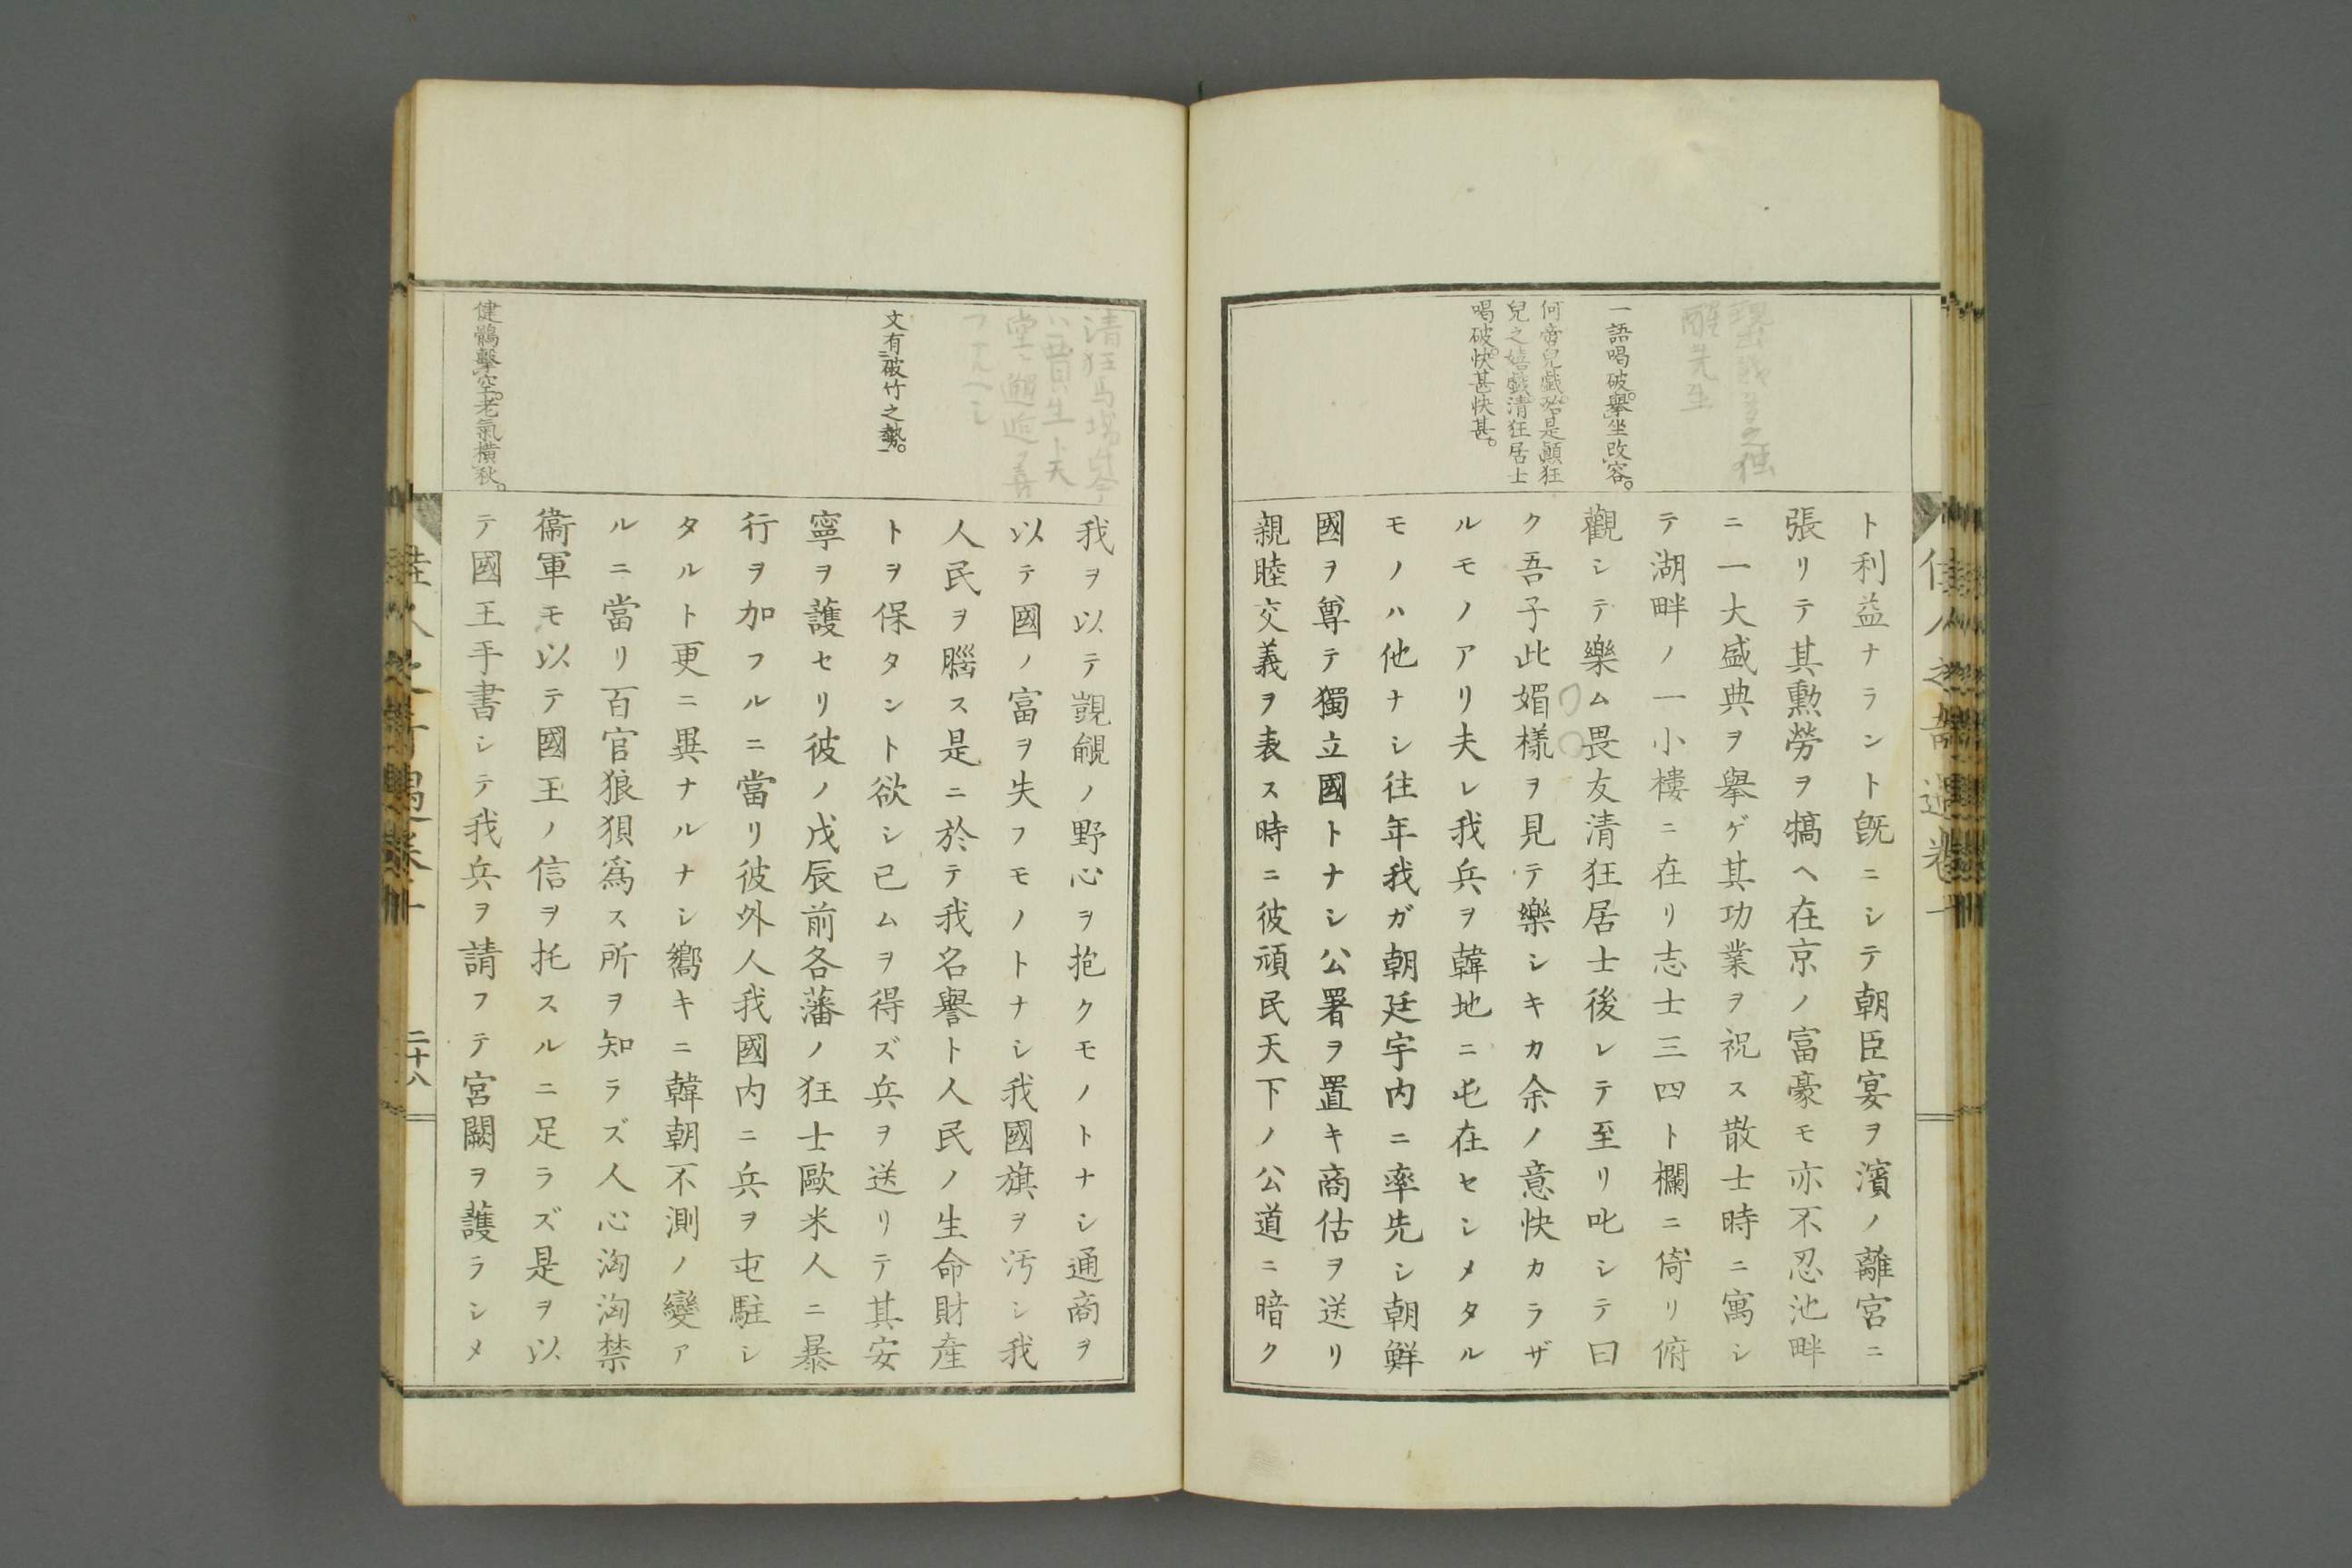 佳人之奇遇卷十
一語喝破。擧坐改容。
何啻兒戯。殆是顚狂
兒之嬉戯。清狂居士
喝破。快甚快甚。
ト利益ナラント既ニシテ朝臣宴ヲ濱ノ離宮ニ
張リテ其勳勞ヲ犒ヘ在京ノ富豪モ亦不忍池畔
ニ一大盛典ヲ擧ゲ其功業ヲ祝ス散士時ニ寓シ
テ湖畔ノ一小樓ニ在リ志士三四ト欄ニ倚リ俯
觀シテ樂ム畏友清狂居士後レテ至リ叱シテ曰
ク吾子此媚樣ヲ見テ樂シキカ余ノ意快カラザ
ルモノアリ夫レ我兵ヲ韓地ニ屯在セシメタル
モノハ他ナシ往年我ガ朝廷宇内ニ率先シ朝鮮
國ヲ尊テ獨立國トナシ公署ヲ置キ商估ヲ送リ
親睦交義ヲ表ス時ニ彼頑民天下ノ公道ニ暗ク
文有破竹之勢。
健鶻擊空。老氣横秋。
我ヲ以テ覬覦ノ野心ヲ抱クモノトナシ通商ヲ
以テ國ノ富ヲ失フモノトナシ我國旗ヲ汚シ我
人民ヲ腦ス是ニ於テ我名譽ト人民ノ生命財産
トヲ保タント欲シ已ムヲ得ズ兵ヲ送リテ其安
寧ヲ護セリ彼ノ戊辰前各藩ノ狂士歐米人ニ暴
行ヲ加フルニ當リ彼外人我國内ニ兵ヲ屯駐シ
タルト更ニ異ナルナシ嚮キニ韓朝不測ノ變ア
ルニ當リ百官狼狽爲ス所ヲ知ラズ人心洶洶禁
衞軍モ以テ國王ノ信ヲ托スルニ足ラズ是ヲ以
テ國王手書シテ我兵ヲ請フテ宮闕ヲ護ラシメ
佳人之奇遇卷十
二十八